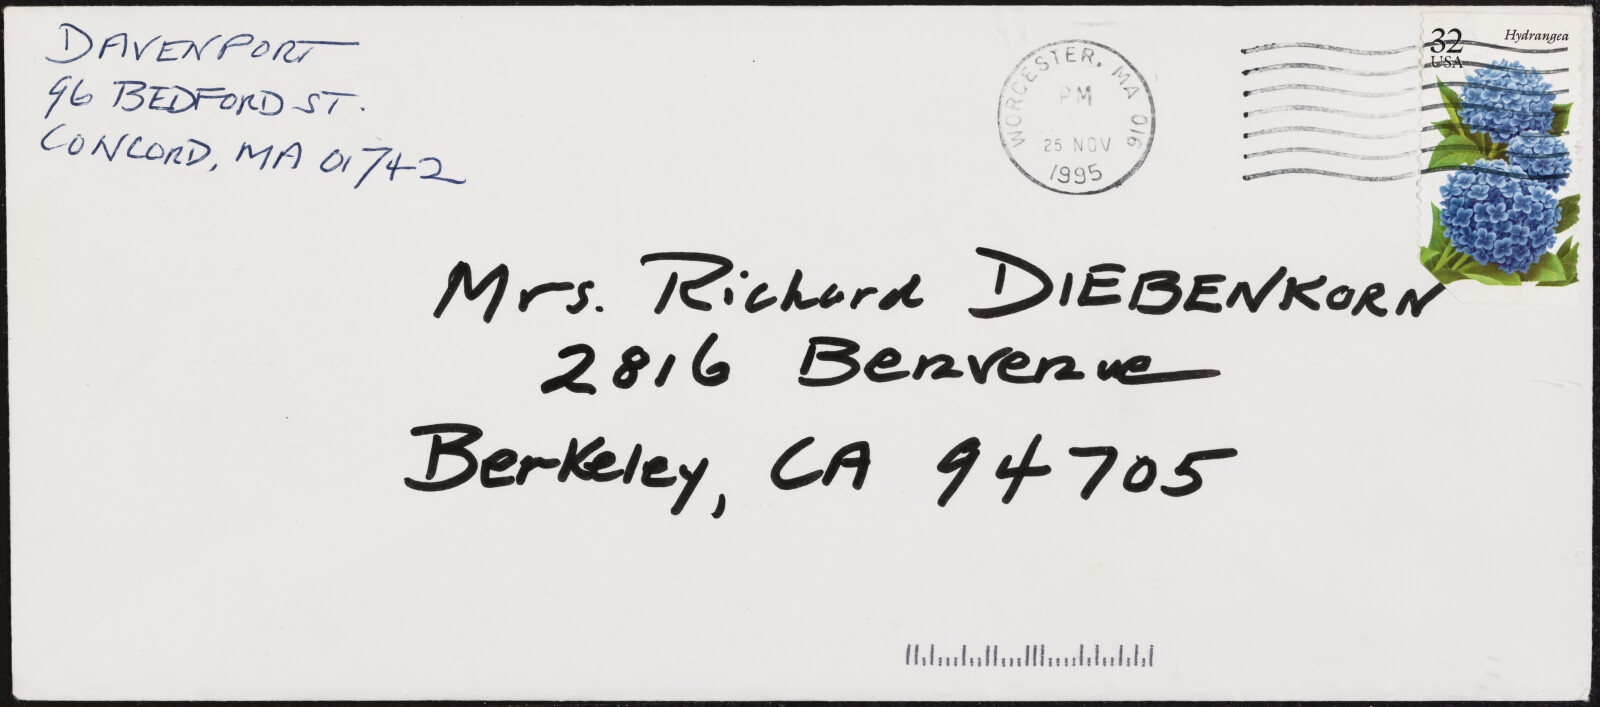 DAVENPORT
96 BEDFORD ST.
CONCORD, MA 01742
WORCESTER, MA 016
PM
25 NOV
1995
32
USA
Hydrangea
Mrs. Richard DIEBENKORN
2816 Benvenue
Berkeley, CA 94705